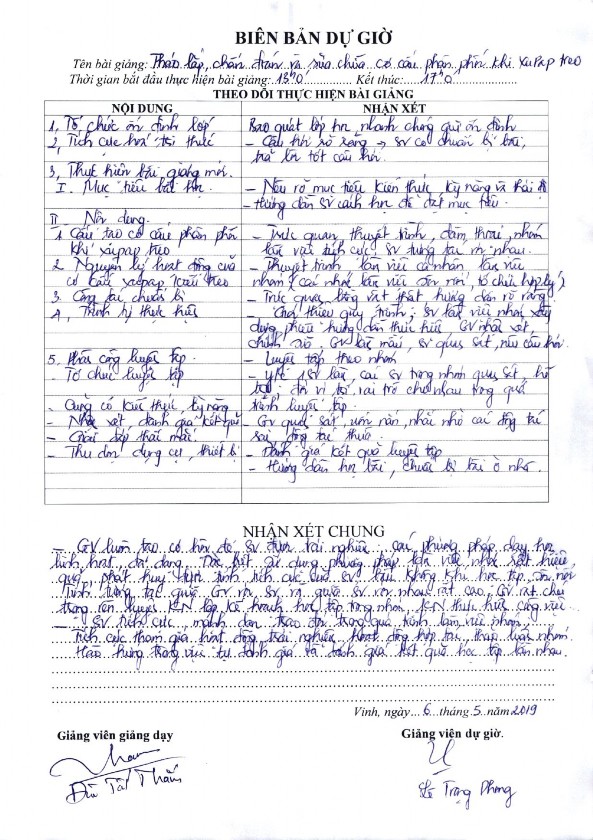 BIÊN BẢN DỰ GIỜ
Tên bài giảng: Tháo lắp, chẩn đoán và sửa chữa cơ cấu phân phối khí xupap treo
Thời gian bắt đầu thực hiện bài giảng: 13h0 Kết thúc: 17h0
THEO DÕI THỰC HIỆN BÀI GIẢNG
NỘI DUNG
NHẬN XÉT
1, Tổ chức ổn định lớp
Bao quát lớp học, nhanh chóng giữ ổn định
2, Tích cực hoá tri thức
- Câu hỏi rõ ràng → SV có chuẩn bị bài,
trả lời tốt câu hỏi.
3, Thực hiện bài giảng mới.
I. Mục tiêu bài học.
- Nêu rõ mục tiêu kiến thức, kỹ năng và thái
- Hướng dẫn SV cách học để đạt mục tiêu.
II - Nội dung.
1. Cấu tạo cơ cấu phân phối
khí xupap treo
- Trực quan, thuyết trình, đàm thoại, nhóm
làm việc tích cực, SV tương tác với nhau.
2. Nguyên lý hoạt động của
cơ cấu xupap kiểu treo
- Thuyết trình, làm việc cá nhân, làm việc
nhóm (cá nhân làm việc độc lập, tổ chức hợp lý)
3. Công tác chuẩn bị
- Trực quan bằng vật thật hướng dẫn rõ ràng
4, Trình tự thực hiện
- Giới thiệu quy trình; SV làm việc nhóm xây
dựng phiếu hướng dẫn thực hiện, GV nhận xét,
chỉnh sửa. GV làm mẫu, SV quan sát, nêu câu hỏi.
5. Phân công luyện tập.
- Luyện tập theo nhóm
- Tổ chức luyện tập
- Y/c 1 SV làm các SV trong nhóm quan sát, hỗ
trợ đổi vị trí, vai trò cho nhau trong quá
trình luyện tập.
- Củng cố kiến thức, kỹ năng
- Nhận xét, đánh giá kết quả
- GV quan sát, uốn nắn, nhắc nhở các động tác
sai, động tác thừa.
- Giải đáp thắc mắc
- Đánh giá kết quả luyện tập
- Thu dọn dụng cụ, thiết bị
- Hướng dẫn học bài, chuẩn bị bài ở nhà.
NHẬN XÉT CHUNG
- GV luôn tạo cơ hội để SV được trải nghiệm các phương pháp dạy học
linh hoạt, đa dạng. Đặc biệt sử dụng phương pháp làm việc nhóm rất hiệu
quả, phát huy được tính tích cực của SV làm không khí học tập
Tính tương tác giữa GV với SV và giữa SV với nhau rất cao, GV rất chú
trọng rèn luyện KN lập kế hoạch học tập trong nhóm, KN thực hiện công việc
- SV tích cực, mạnh dạn trao đổi trong quá trình làm việc nhóm.
Tích cực tham gia hoạt động trải nghiệm, hoạt động hợp tác, thảo luận nhóm.
Hào hứng trong việc tự đánh giá và đánh giá kết quả học tập lẫn nhau.
Vinh, ngày 6 tháng 5 năm 2019
Giảng viên giảng dạy
Giảng viên dự giờ.
Lê Trọng Phong